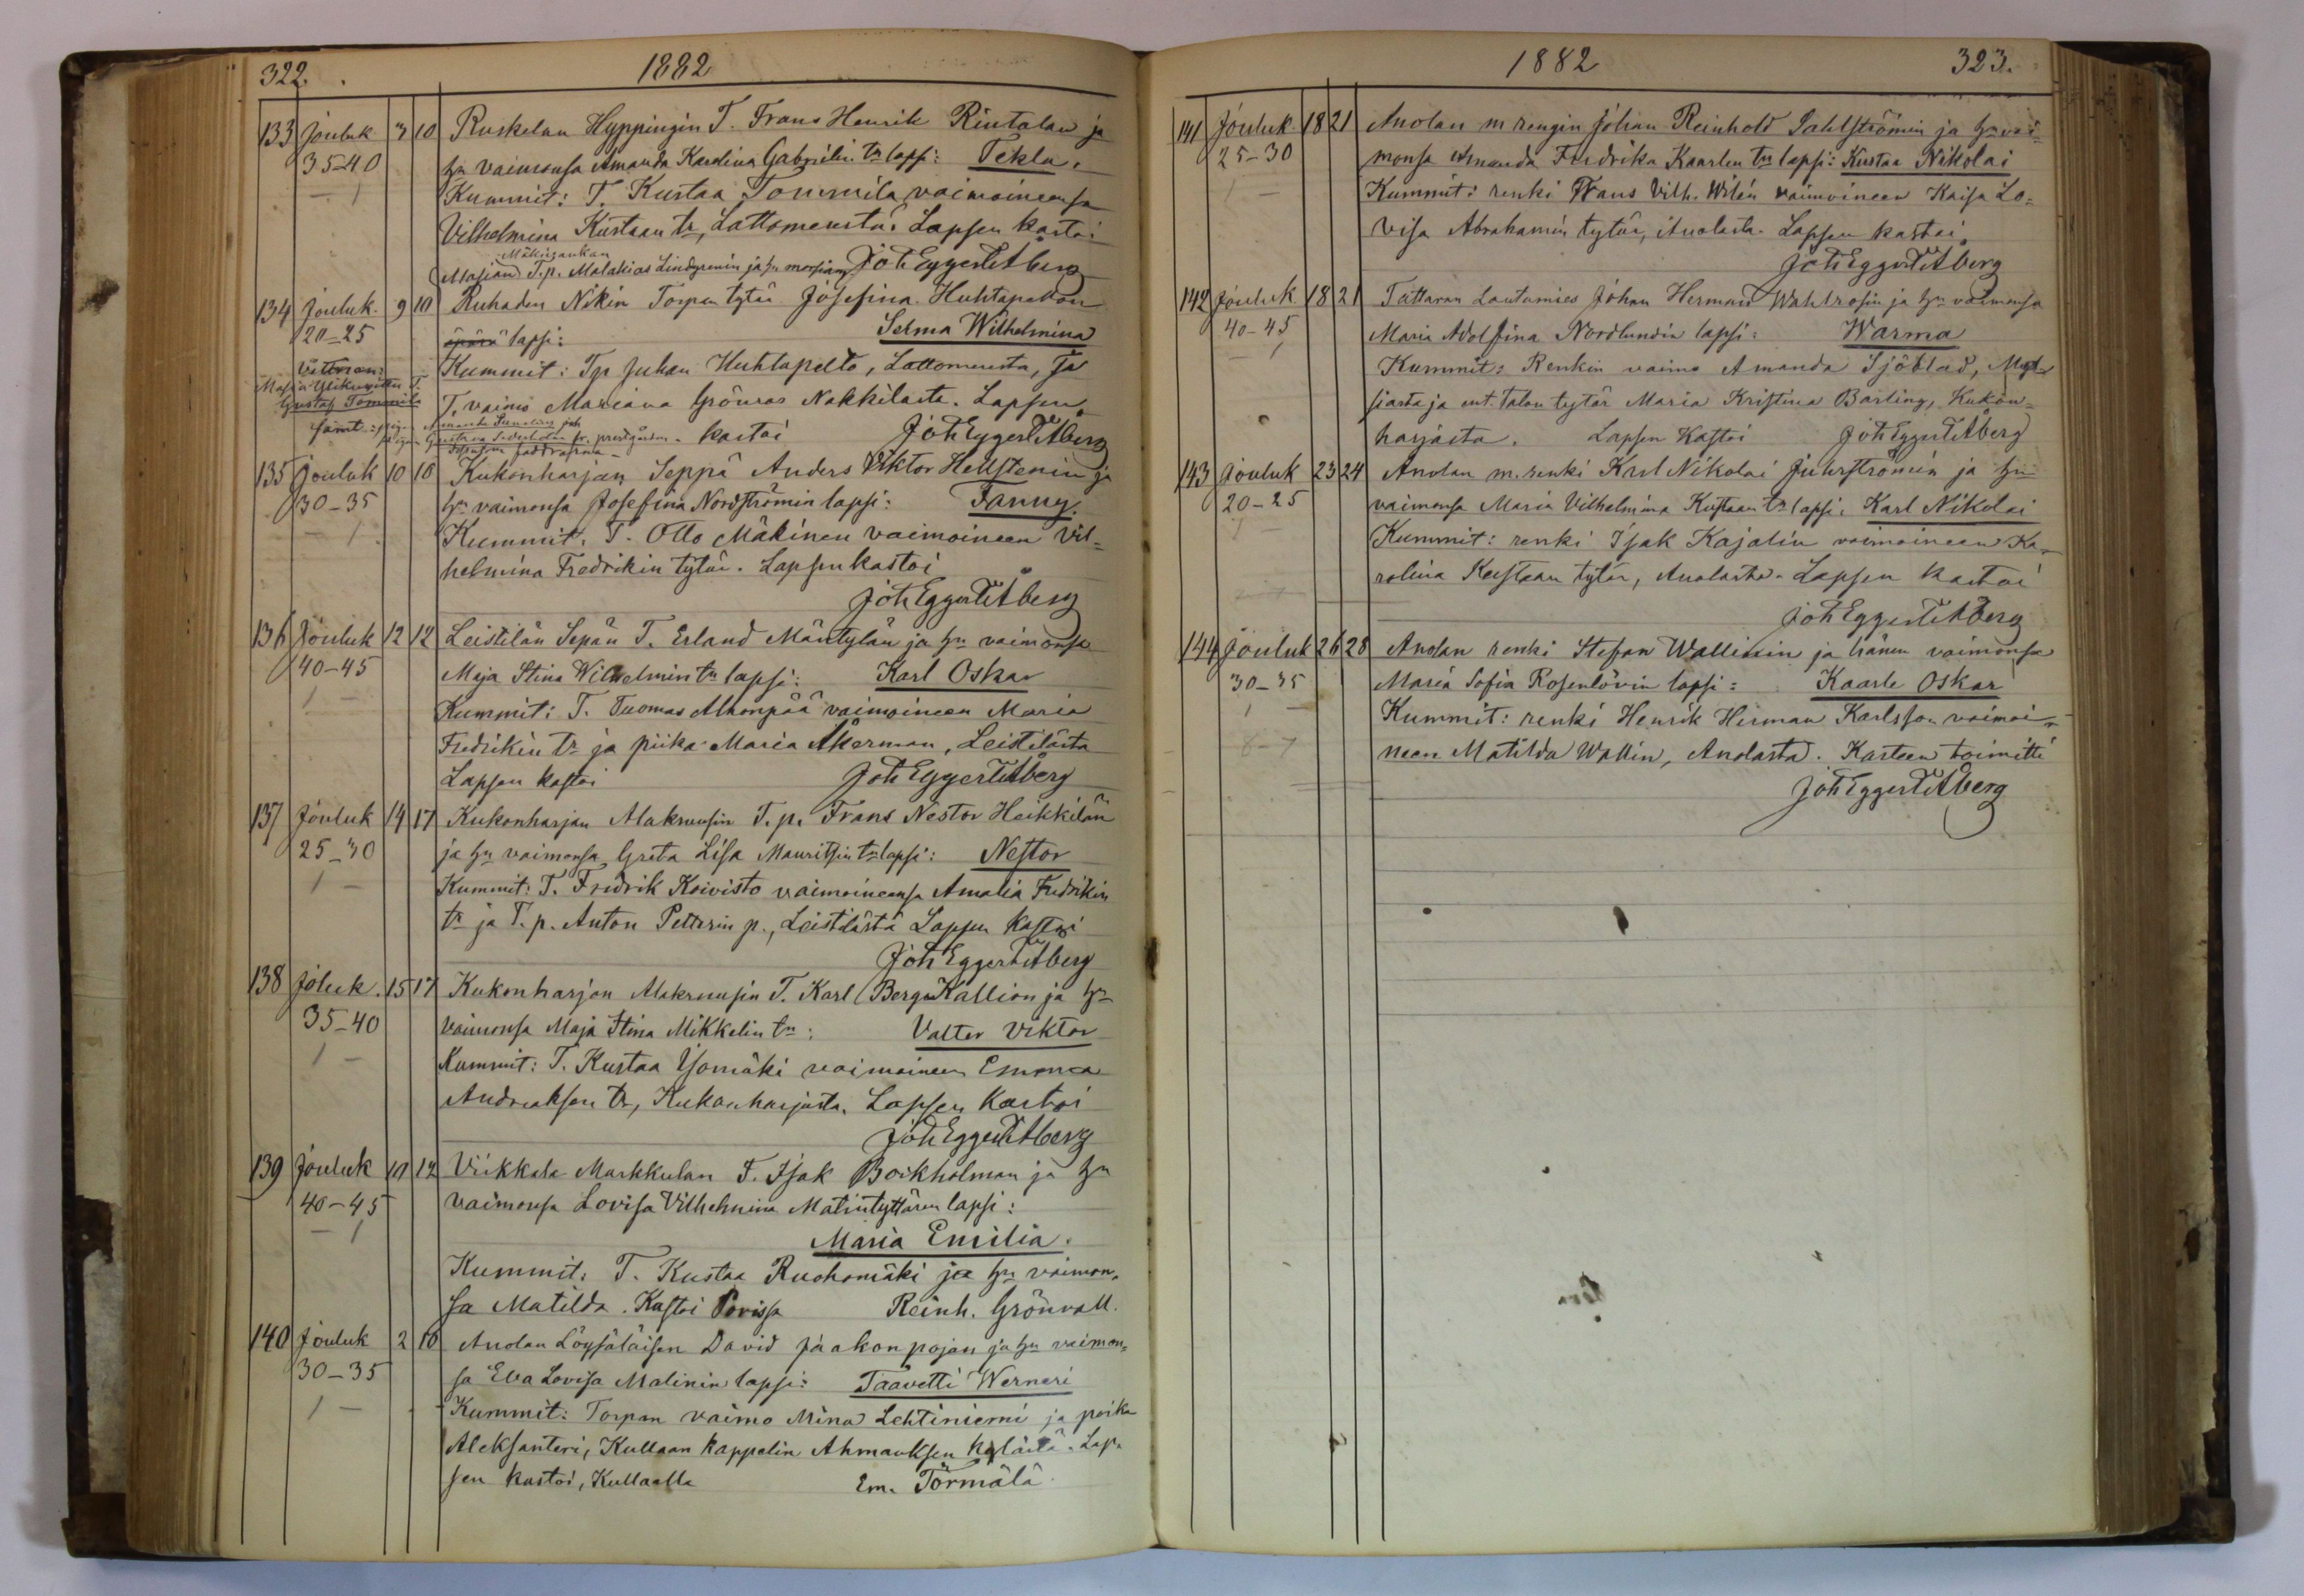 322.
1882
133 Jouluk 3 10 Ruskelan Hyppingin T. Frans Henrik Rintalan ja
35-40 hn vaimonsa Amanda Karolina Gabrielin tr lapsi: Tekla.
Kummit: T. Kustaa Tommila vaimoineensa
Vilhelmina Kustaan tr, Lattomerestä. Lapsen kastoi
Masian T.p. Malakias Lindgrenin ja hn morsian Joh Eggert Åberg
134 Jouluk. 9 10 Ruhaden Nikin Torpan tytär Josefina Huhtapellon
20-25 äpärä lapsi: Selma Wilhelmina
Vittnen: Kummit: Tp Juhan Huhtapelto, Lattomeresta, ja
Gustaf Tommila T. vaimo Mariana Grönroos Nakkilasta. Lapsen
samt kastoi Joh Eggert Åberg
135 Jouluk 10 10 Kukonharjan Seppä Anders Viktor Hellstenin ja
30-35 hn vaimonsa Josefina Nordströmin lapsi: Fanny.
Kummit. T. Otto Mäkinen vaimoineen Vil-
helmina Fredrikin tytär. Lapsen kastoi
Joh Eggert Åberg
136 Jouluk 12 12 Leistilän Sepän T. Erland Mäntylän ja hn vaimonsa
40-45 Maja Stina Wilhelmin tr lapsi: Karl Oskar
Kummit: T. Tuomas Alhonpää vaimoineen Maria
Fredrikin tr ja piika Maria Åkerman, Leistilästä
Lapsen kastoi Joh Eggert Åberg
137 Jouluk 14 17 Kukonharjan Alakruusin T.p. Frans Nestor Heikkilän
25-30 ja hn vaimonsa Greta Lisa Mauritsin tr lapsi: Nestor
Kummit: T. Fredrik Koivisto vaimoineensa Amalia Fredrikin
tr ja T.p. Anton Petterin p., Leistilästä Lapsen kastoi
Joh Eggert Åberg
138 Joluk. 15 17 Kukonharjan Alakruusin T. Karl Berg Kallion ja hn
35-40 vaimonsa Maja Stina Mikkelin tr: Valter Viktor
Kummit: T. Kustaa Isomäki vaimoineen Emma
Andreaksen tr, Kukonharjasta. Lapsen kastoi
Joh Eggert Åberg
139 Jouluk 10 12 Viikkala Markkulan T. Isak Bockholman ja hn
40-45 vaimonsa Lovisa Vilhelmina Matintyttären lapsi:
Maria Emilia.
Kummit: T. Kustaa Ruohomäki ja hn vaimon-
sa Matilda. Kastoi Porissa Reinh. Grönvall.
140 Jouluk 2 10 Anolan Löysäläisen David Jaakonpojan ja hn vaimon-
30-35 sa Eva Lovisa Malinin lapsi: Taavetti Werneri
Kummit: Torpan vaimo Mina Lehtiniemi ja poika
Aleksanteri, Kullaan kappelin Ahmauksen kylästä. Lap-
sen kastoi, Kullaalla Em. Törmälä.
1882
323.
141 Jouluk. 18 21 Anolan m rengin Johan Reinhold Dahlströmin ja hn vai-
25-30 monsa Amanda Fredrika Kaarlen tr lapsi: Kustaa Nikolai
Kummit: renki Frans Vilh. Wilén vaimoineen Kaisa Lo-
visa Abrahamin tytär, Anolasta. Lapsen kastoi
Joh Eggert Åberg
142 Jouluk 18 21 Tattaran Lautamies Johan Herman Wahlrosin ja hn vaimonsa
40-45 Maria Adolfina Nordlundin lapsi: Warma
Kummit: Renkin vaimo Amanda Sjöblad,
siasta ja ent. talon tytär Maria Kristina Bärling, Kukon-
harjasta. Lapsen kastoi Joh Eggert Åberg
143 Jouluk 23 24 Anolan m. renki Karl Nikolai Juhrströmin ja hn
20-25 vaimonsa Maria Vilhelmina Kustaan tr lapsi: Karl Nikolai
Kummit: renki Isak Kajalin vaimoineen Ka-
rolina Kustaan tytär, Anolasta. Lapsen kastoi
Joh Eggert Åberg
144 Jouluk 26 28 Anolan renki Stefan Wallinin ja hänen vaimonsa
30-35 Maria Sofia Rosenlövin lapsi: Kaarle Oskar
Kummit: renki Henrik Herman Karlsson vaimoi-
neen Matilda Wallin, Anolasta. Kasteen toimitti
Joh Eggert Åberg